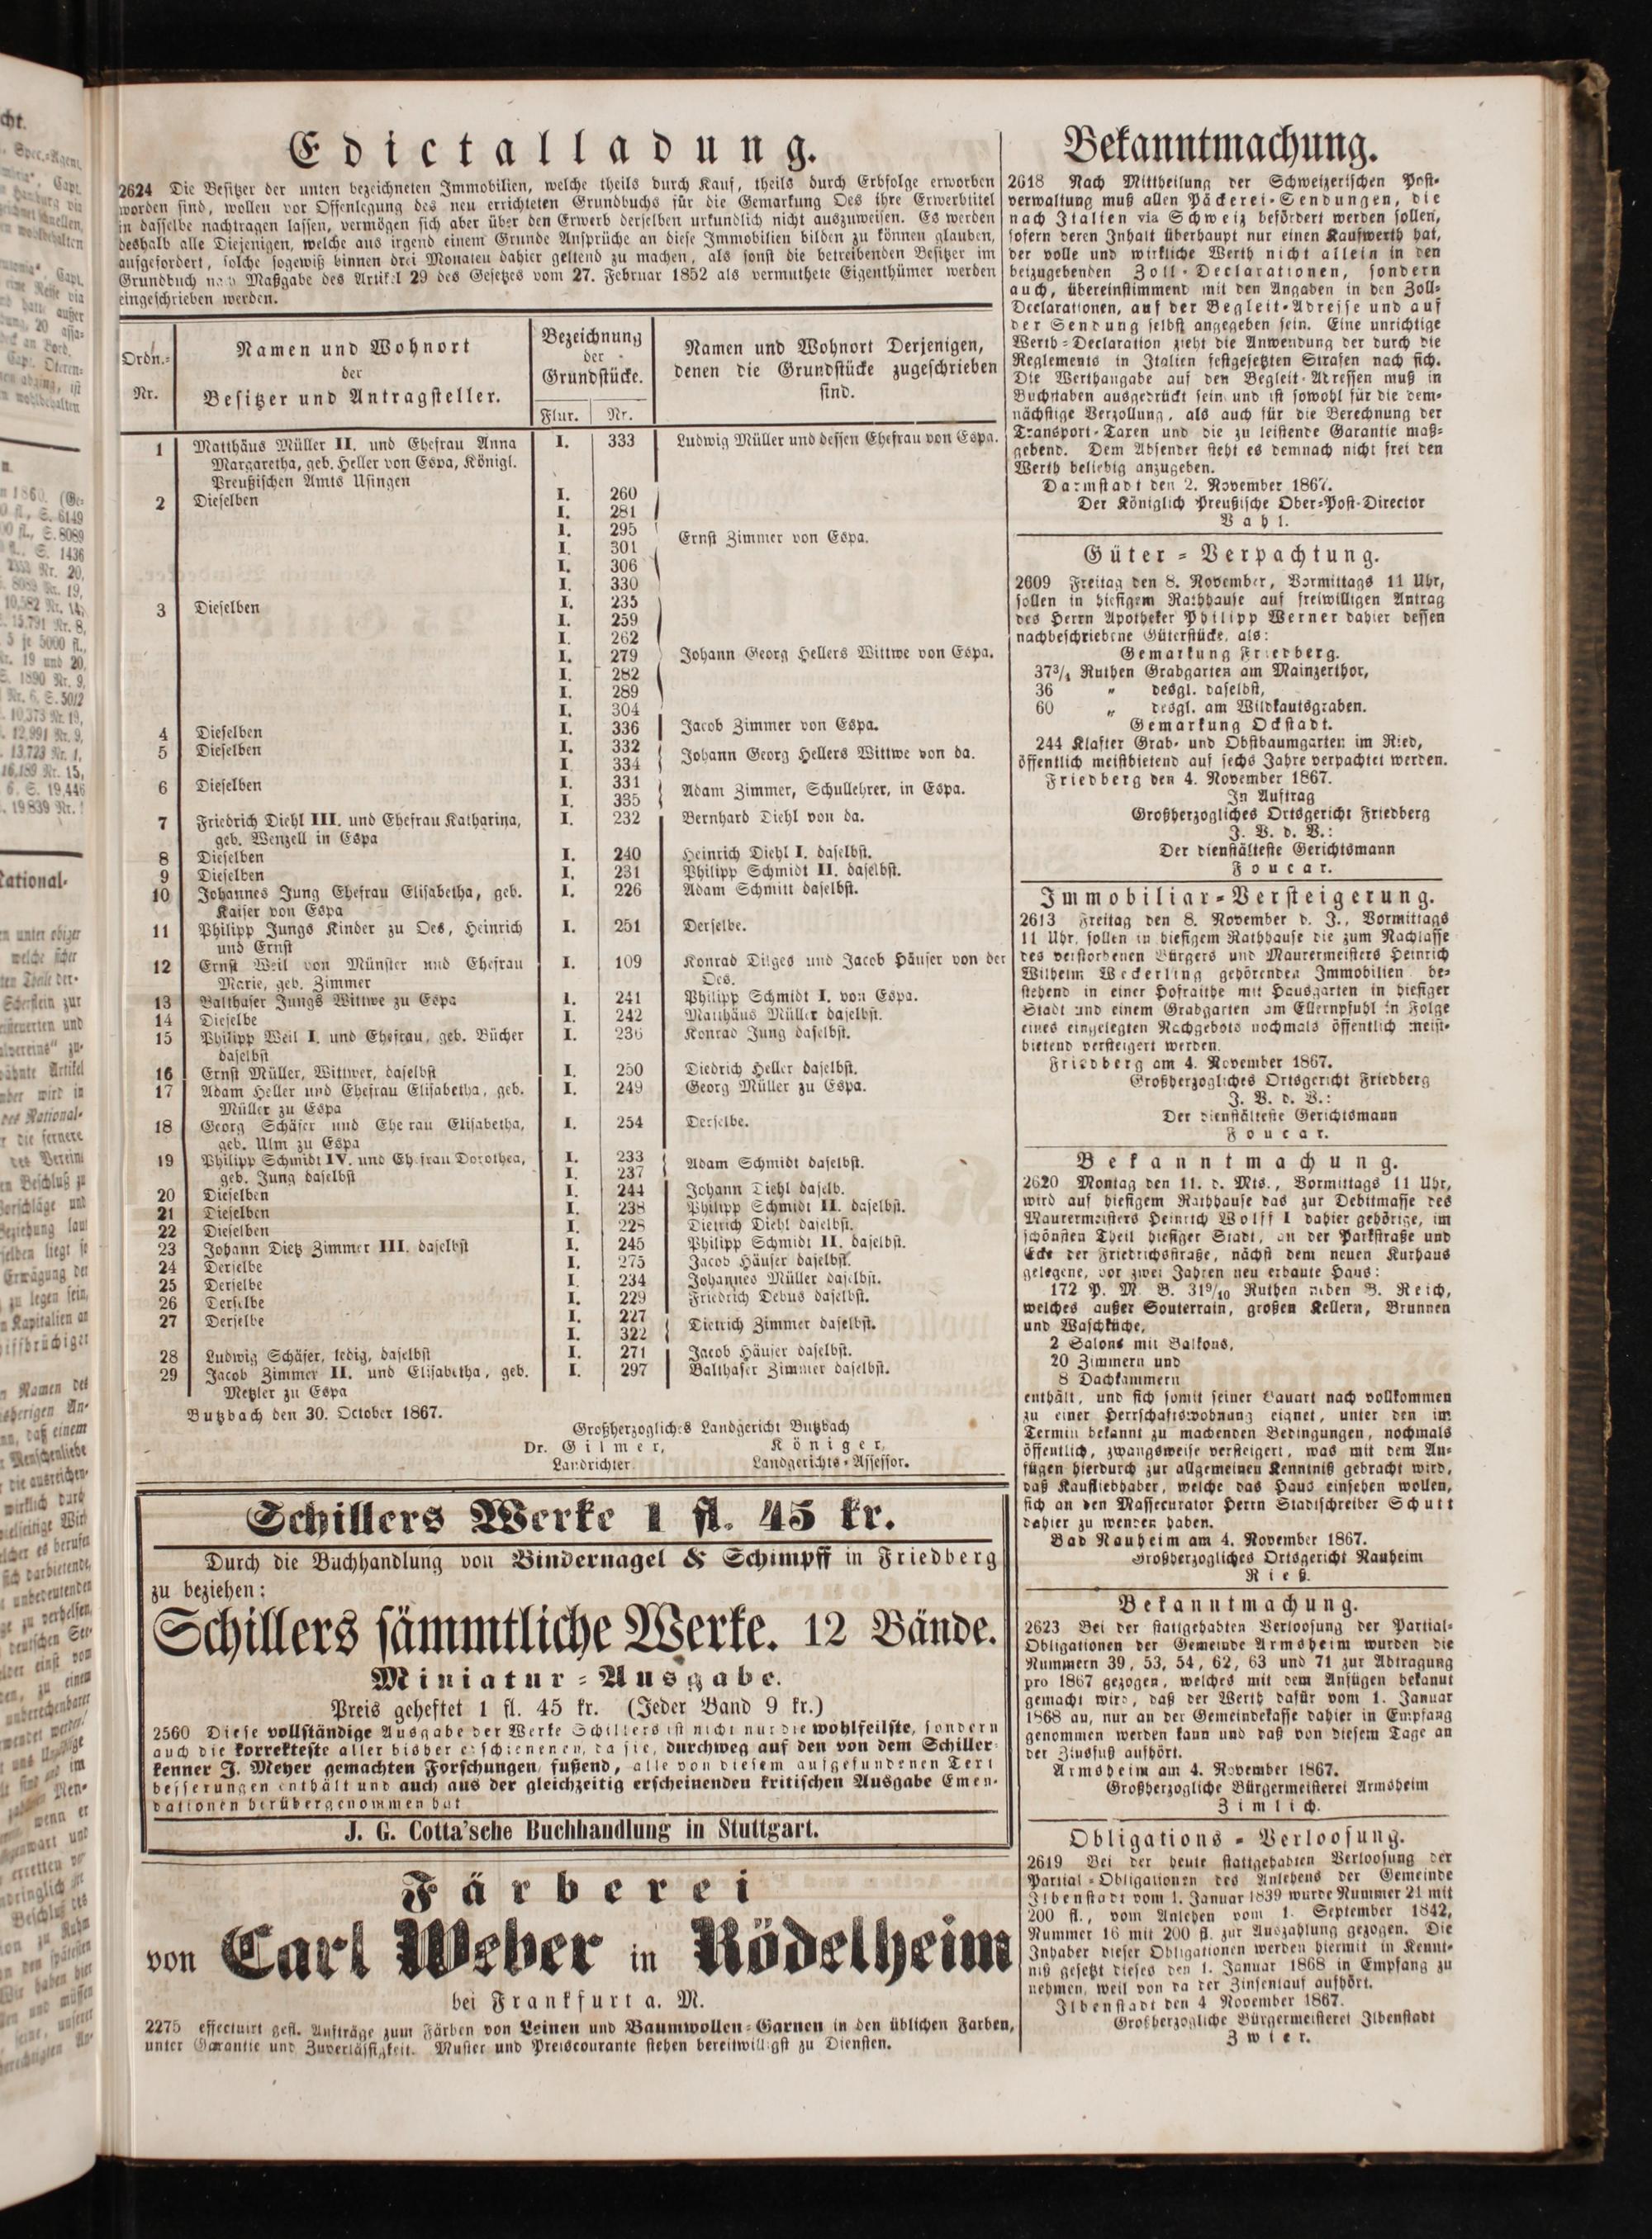 Edictalladung.
2624 Die Besitzer der unten bezeichneten Immobilien, welche theils durch Kauf, theils durch Erbfolge erworben
worden sind, wollen vor Offenlegung des neu errichteten Grundbuchs für die Gemarkung Oes ihre Erwerbtitel
in dasselbe nachtragen lassen, vermögen sich aber über den Erwerb derselben urkundlich nicht auszuweisen. Es werden
deshalb alle Diejenigen, welche aus irgend einem Grunde Ansprüche an diese Immobilien bilden zu können glauben,
aufgefordert, solche sogewiß binnen drei Monaten dahier geltend zu machen, als sonst die betreibenden Besitzer im
Grundbuch nach Maßgabe des Artikel 29 des Gesetzes vom 27. Februar 1852 als vermuthete Eigenthümer werden
eingeschrieben werden.
Ordn.-Nr. | Namen und Wohnort der Besitzer und Antragsteller. | Bezeichnung der Grundstücke. Flur. Nr. | Namen und Wohnort Derjenigen, denen die Grundstücke zugeschrieben sind.
1 Matthäus Müller II. und Ehefrau Anna I. 333 Ludwig Müller und dessen Ehefrau von Espa.
Margaretha, geb. Heller von Espa, Königl.
Preußischen Amts Usingen
2 Dieselben I. 260
I. 281
I. 295
I. 301 Ernst Zimmer von Espa.
I. 306
I. 330
3 Dieselben I. 235
I. 259
I. 262
I. 279 Johann Georg Hellers Wittwe von Espa.
I. 282
I. 289
I. 304
4 Dieselben I. 336 Jacob Zimmer von Espa.
5 Dieselben I. 332 Johann Georg Hellers Wittwe von da.
I. 334
6 Dieselben I. 331 Adam Zimmer, Schullehrer, in Espa.
I. 335
7 Friedrich Diehl III. und Ehefrau Katharina, I. 232 Bernhard Diehl von da.
geb. Wenzell in Espa
8 Dieselben I. 240 Heinrich Diehl I. daselbst.
9 Dieselben I. 231 Philipp Schmidt II. daselbst.
10 Johannes Jung Ehefrau Elisabetha, geb. I. 226 Adam Schmitt daselbst.
Kaiser von Espa
11 Philipp Jungs Kinder zu Oes, Heinrich I. 251 Derselbe.
und Ernst
12 Ernst Weil von Münster und Ehefrau I. 109 Konrad Dilges und Jacob Häuser von der
Marie, geb. Zimmer Oes.
13 Balthaser Jungs Wittwe zu Espa I. 241 Philipp Schmidt I. von Espa.
14 Dieselbe I. 242 Matthäus Müller daselbst.
15 Philipp Weil I. und Ehefrau, geb. Bücher I. 236 Konrad Jung daselbst.
daselbst
16 Ernst Müller, Wittwer, daselbst I. 250 Diedrich Heller daselbst.
17 Adam Heller und Ehefrau Elisabetha, geb. I. 249 Georg Müller zu Espa.
Müller zu Espa
18 Georg Schäfer und Ehe rau Elisabetha, I. 254 Derselbe.
geb. Ulm zu Espa
19 Philipp Schmidt IV. und Eh frau Dorothea, I. 233 Adam Schmidt daselbst.
geb. Jung daselbst I. 237
20 Dieselben I. 244 Johann Diehl daselb.
21 Dieselben I. 238 Philipp Schmidt II. daselbst.
22 Dieselben I. 228 Dietrich Diehl daselbst.
23 Johann Dietz Zimmer III. daselbst I. 245 Philipp Schmidt II. daselbst.
24 Derselbe I. 275 Jacob Häuser daselbst.
25 Derselbe I. 234 Johannes Müller daselbst.
26 Derselbe I. 229 Friedrich Debus daselbst.
27 Derselbe I. 227 Dietrich Zimmer daselbst.
I. 322
28 Ludwig Schäfer, ledig, daselbst I. 271 Jacob Häuser daselbst.
29 Jacob Zimmer II. und Elisabetha, geb. I. 297 Balthaser Zimmer daselbst.
Metzler zu Espa
Butzbach den 30. October 1867.
Großherzogliches Landgericht Butzbach
Dr. Gilmer, Königer,
Landrichter. Landgerichts-Assessor.
Schillers Werke 1 fl. 45 kr.
Durch die Buchhandlung von Bindernagel & Schimpff in Friedberg
zu beziehen:
Schillers sämmtliche Werke. 12 Bände.
Miniatur-Ausgabe.
Preis geheftet 1 fl. 45 kr. (Jeder Band 9 kr.)
2560 Diese vollständige Ausgabe der Werke Schillers ist nicht nur die wohlfeilste, sondern
auch die korrekteste aller bisher erschienenen, da sie, durchweg auf den von dem Schiller-
kenner J. Meyer gemachten Forschungen fußend, alle von diesem aufgefundenen Text
besserungen enthält und auch aus der gleichzeitig erscheinenden kritischen Ausgabe Emen-
dationen herübergenommen hat
J. G. Cotta'sche Buchhandlung in Stuttgart.
Färberei
von Carl Weber in Rödelheim
bei Frankfurt a. M.
2275 effectuirt gefl. Aufträge zum Färben von Leinen und Baumwollen-Garnen in den üblichen Farben,
unter Garantie und Zuverlässigkeit. Muster und Preiscourante stehen bereitwilligst zu Diensten.
Bekanntmachung.
2618 Nach Mittheilung der Schweizerischen Post-
verwaltung muß allen Päckerei-Sendungen, die
nach Italien via Schweiz befördert werden sollen,
sofern deren Inhalt überhaupt nur einen Kaufwerth hat,
der volle und wirkliche Werth nicht allein in den
beizugebenden Zoll-Declarationen, sondern
auch, übereinstimmend mit den Angaben in den Zoll-
Declarationen, auf der Begleit-Adresse und auf
der Sendung selbst angegeben sein. Eine unrichtige
Werth-Declaration zieht die Anwendung der durch die
Reglements in Italien festgesetzten Strafen nach sich.
Die Werthangabe auf den Begleit-Adressen muß in
Buchstaben ausgedrückt sein und ist sowohl für die dem-
nächstige Verzollung, als auch für die Berechnung der
Transport-Taxen und die zu leistende Garantie maß-
gebend. Dem Absender steht es demnach nicht frei den
Werth beliebig anzugeben.
Darmstadt den 2. November 1867.
Der Königlich Preußische Ober-Post-Director
Vahl.
Güter-Verpachtung.
2609 Freitag den 8. November, Vormittags 11 Uhr,
sollen in hiesigem Rathhause auf freiwilligen Antrag
des Herrn Apotheker Philipp Werner dahier dessen
nachbeschriebene Güterstücke, als:
Gemarkung Friedberg.
37 3/4 Ruthen Grabgarten am Mainzerthor,
36 „ desgl. daselbst,
60 „ desgl. am Wildkautsgraben.
Gemarkung Ockstadt.
244 Klafter Grab- und Obstbaumgarten im Ried,
öffentlich meistbietend auf sechs Jahre verpachtet werden.
Friedberg den 4. November 1867.
In Auftrag
Großherzogliches Ortsgericht Friedberg
J. V. d. V.:
Der dienstälteste Gerichtsmann
Foucar.
Immobiliar-Versteigerung.
2613 Freitag den 8. November d. J., Vormittags
11 Uhr, sollen in hiesigem Rathhause die zum Nachlasse
des verstorbenen Bürgers und Maurermeisters Heinrich
Wilhelm Weckerling gehörenden Immobilien be-
stehend in einer Hofraithe mit Hausgarten in hiesiger
Stadt und einem Grabgarten am Ellernpfuhl in Folge
eines eingelegten Nachgebots nochmals öffentlich meist-
bietend versteigert werden.
Friedberg am 4. November 1867.
Großherzogliches Ortsgericht Friedberg
J. V. d. V.:
Der dienstälteste Gerichtsmann
Foucar.
Bekanntmachung.
2620 Montag den 11. d. Mts., Vormittags 11 Uhr,
wird auf hiesigem Rathhause das zur Debitmasse des
Maurermeisters Heinrich Wolff I dahier gehörige, im
schönsten Theil hiesiger Stadt, an der Parkstraße und
Ecke der Friedrichsstraße, nächst dem neuen Kurhaus
gelegene, vor zwei Jahren neu erbaute Haus:
172 P. M B. 31 9/10 Ruthen neben B. Reich,
welches außer Souterrain, großen Kellern, Brunnen
und Waschküche,
2 Salons mit Balkons,
20 Zimmern und
8 Dachkammern
enthält, und sich somit seiner Bauart nach vollkommen
zu einer Herrschaftswohnung eignet, unter den im
Termin bekannt zu machenden Bedingungen, nochmals
öffentlich, zwangsweise versteigert, was mit dem An-
fügen hierdurch zur allgemeinen Kenntniß gebracht wird,
daß Kaufliebhaber, welche das Haus einsehen wollen,
sich an den Massecurator Herrn Stadtschreiber Schutt
dahier zu wenden haben.
Bad Nauheim am 4. November 1867.
Großherzogliches Ortsgericht Nauheim
Rieß.
Bekanntmachung.
2623 Bei der stattgehabten Verloosung der Partial-
Obligationen der Gemeinde Armsheim wurden die
Nummern 39, 53, 54, 62, 63 und 71 zur Abtragung
pro 1867 gezogen, welches mit dem Anfügen bekannt
gemacht wird, daß der Werth dafür vom 1. Januar
1868 an, nur an der Gemeindekasse dahier in Empfang
genommen werden kann und daß von diesem Tage an
der Zinsfuß aufhört.
Armsheim am 4. November 1867.
Großherzogliche Bürgermeisterei Armsheim
Zimlich.
Obligations-Verloosung.
2619 Bei der heute stattgehabten Verloosung der
Partial-Obligationen des Anlehens der Gemeinde
Ilbenstadt vom 1. Januar 1839 wurde Nummer 21 mit
200 fl., vom Anlehen vom 1. September 1842,
Nummer 16 mit 200 fl. zur Auszahlung gezogen. Die
Inhaber dieser Obligationen werden hiermit in Kennt-
niß gesetzt dieses den 1. Januar 1868 in Empfang zu
nehmen, weil von da der Zinsenlauf aufhört.
Ilbenstadt den 4 November 1867.
Großherzogliche Bürgermeisterei Ilbenstadt
Zwier.